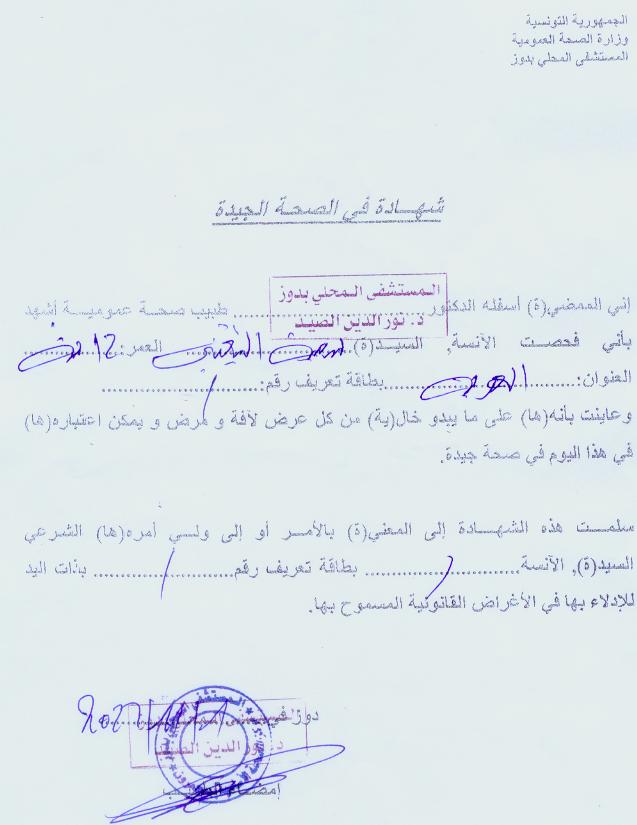 الجمهورية التونسية
وزارة الصحة العمومية
المستشفى المحلي بدوز
شهادة في الصحة الجيدة
المستشفى المحلي بدوز
إني الممضي(ة) أسفله الدكتور.................... طبيب صحة عمومية أشهد
د. نور الدين الصيد
بأني فحصت الآنسة, السيد(ة)............ العمر:............
العنوان:............بطاقة تعريف رقم:............
وعاينت بأنه(ها) على ما يبدو خال(ية) من كل عرض لآفة و مرض و يمكن اعتباره(ها)
في هذا اليوم في صحة جيدة.
سلمت هذه الشهادة إلى المعني(ة) بالأمر أو إلى ولي أمره(ها) الشرعي
السيد(ة), الآنسة............ بطاقة تعريف رقم............ بذات اليد
للإدلاء بها في الأغراض القانونية المسموح بها.
دوز في
د. نور الدين الصيد
إمضاء الطبيب